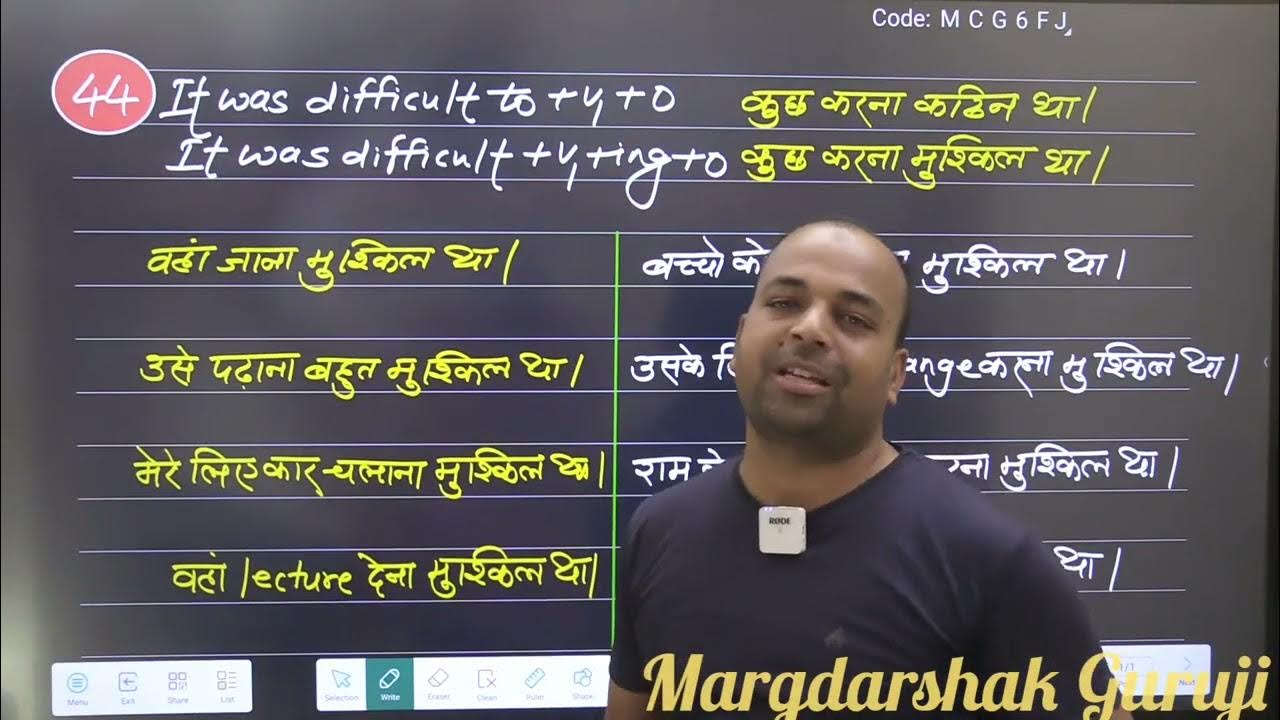 Code: M C G 6 F J
44 It was difficult to + V + O कुछ करना कठिन था।
It was difficult + V + ing + O कुछ करना मुश्किल था।
वहां जाना मुश्किल था।
उसे पढ़ाना बहुत मुश्किल था।
मेरे लिए कार चलाना मुश्किल था।
वहां lecture देना मुश्किल था।
बच्चो को मुश्किल था।
उसके ange करना मुश्किल था।
राम मुश्किल था।
था।
RØDE
Menu Exit Share List Selection Write Eraser Clean Ruler Shape 1/1 Next
Margdarshak Guruji